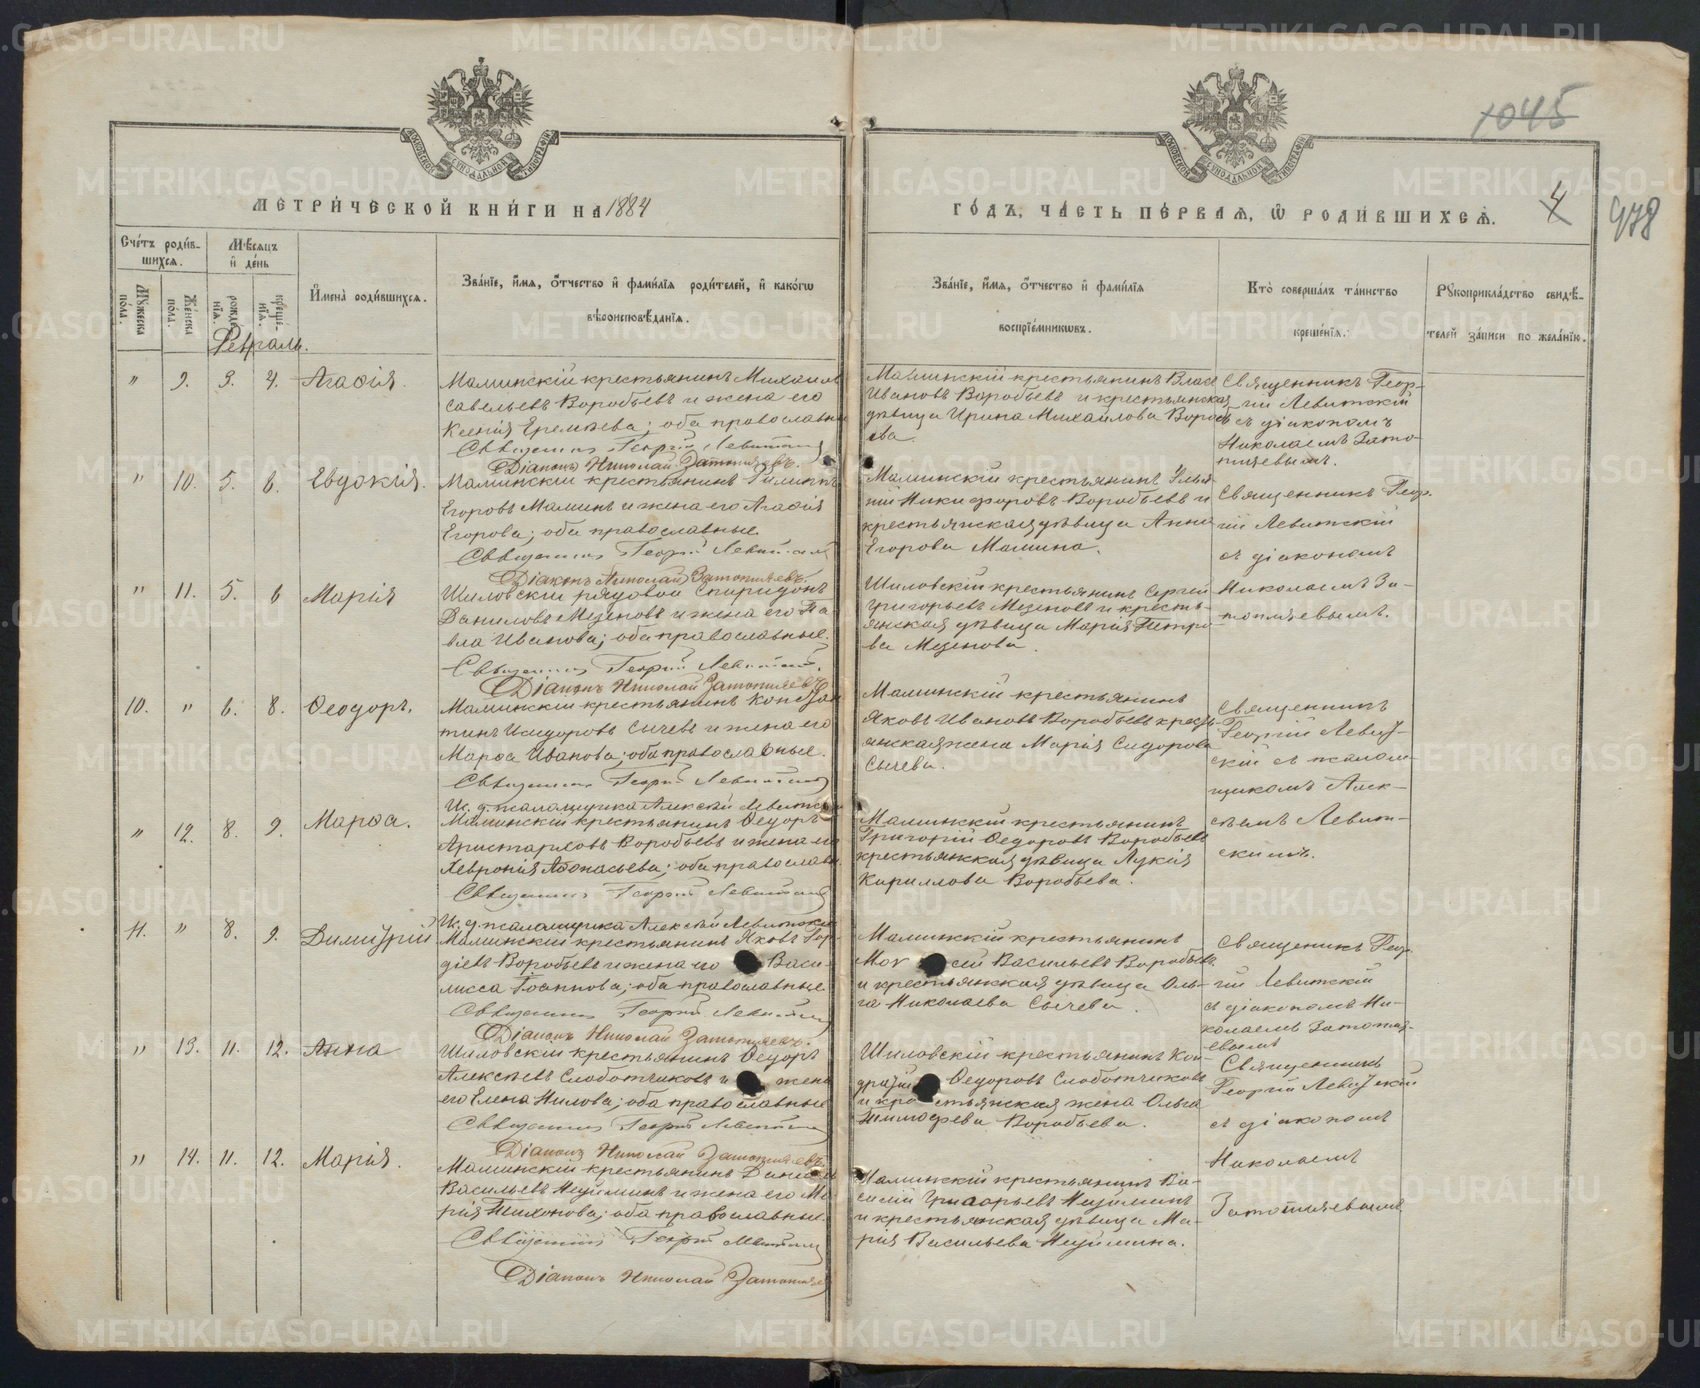 1045
МЕТРИЧЕСКОЙ КНИГИ НА 1884
ГОДЪ, ЧАСТЬ ПЕРВАЯ, Ѿ РОДИВШИХСЯ.
4
978
Счетъ родив-
шихся.
Мужеска
пола.
Женска
пола.
Мѣсяцъ
и день
рожде-
нія.
креще-
нія.
Имена родившихся.
Званіе, имя, отчество и фамилія родителей, и какогѡ
вѣроисповѣданія.
Званіе, имя, отчество и фамилія
воспріемникѡвъ.
Кто совершалъ таинство
крещенія.
Рукоприкладство свидѣ-
телей записи по желанію.
Февраль.
" 9. 3. 4. Агафія.
Маминскій крестьянинъ Михаилъ
Савельевъ Воробьевъ и жена его
Ксенія Еремѣева; оба православны
Священникъ Георгій Левитскій
Діаконъ Николай Затопляевъ.
Маминскій крестьянинъ Власъ
Ивановъ Воробьевъ и крестьянская
дѣвица Ирина Михайлова Воробь
ева.
Священникъ Геор-
гій Левитскій
съ діакономъ
Николаемъ Зато-
пляевымъ.
" 10. 5. 6. Евдокія.
Маминскій крестьянинъ Филиппъ
Егоровъ Маминъ и жена его Агафія
Егорова; оба православные.
Священникъ Георгій Левитскій
Діаконъ Николай Затопляевъ.
Маминскій крестьянинъ
Никифоровъ Воробьевъ и
крестьянская дѣвица Анна
Егорова Мамина.
Священникъ Геор-
гій Левитскій
съ діакономъ
" 11. 5. 6 Марія
Шиловскій рядовой Спиридонъ
Даниловъ Мезеновъ и жена его Па
вла Иванова; оба православные.
Священникъ Георгій Левитскій.
Діаконъ Николай Затопляевъ
Шиловскій крестьянинъ Сергій
Григорьевъ Мезеновъ и кресть-
янская дѣвица Марія Петро
ва Мезенова.
Николаемъ За-
топляевымъ.
10. " 6. 8. Ѳеодоръ.
Маминскій крестьянинъ Констан
тинъ Исидоровъ Сычевъ и жена его
Марѳа Иванова; оба православные.
Священникъ Георгій Левитскій
Ис. д. псаломщика Алексѣй Левитскій
Маминскій крестьянинъ
Яковъ Ивановъ Воробьевъ кресть-
янская жена Марія Сидорова
Сычева.
Священникъ
Георгій Левит-
скій съ псалом-
щикомъ Алек-
" 12. 8. 9. Марѳа.
Маминскій крестьянинъ Ѳедоръ
Аристарховъ Воробьевъ и жена его
Февронія Аѳонасьева; оба православн
Священникъ Георгій Левитскій
Ис. д. псаломщика Алексѣй Левитскій
Маминскій крестьянинъ
Григорій Ѳедоровъ Воробьевъ
крестьянская дѣвица Лукія
Кириллова Воробьева.
сѣемъ Левит-
скимъ.
11. " 8. 9. Димитрій
Маминскій крестьянинъ Яковъ Гор-
діевъ Воробьевъ и жена его Васи-
лисса Іоаннова; оба православные
Священникъ Георгій Левитскій
Діаконъ Николай Затопляевъ.
Маминскій крестьянинъ
Мок сей Васильевъ Воробьевъ
и крестьянская дѣвица Оль-
га Николаева Сычева.
Священникъ Геор-
гій Левитскій
съ діакономъ Ни-
колаемъ Затопля-
евымъ
" 13. 11. 12. Анна
Шиловскій крестьянинъ Ѳедоръ
Алексѣевъ Слободчиковъ и жена
его Елена Нилова; оба православные
Священникъ Георгій Левитскій
Діаконъ Николай Затопляевъ
Шиловскій крестьянинъ Кон-
дратій Ѳедоровъ Слободчиковъ
и крестьянская жена Ольга
Тимофеева Воробьева.
Священникъ
Георгій Левитскій
съ діакономъ
" 14. 11. 12. Марія.
Маминскій крестьянинъ Данило
Васильевъ Неуйминъ и жена его Ма
рія Тихонова; оба православные.
Священникъ Георгій Левитскій
Діаконъ Николай Затопляевъ
Маминскій крестьянинъ Ва-
силій Григорьевъ Неуйминъ
и крестьянская дѣвица Ма-
рія Васильева Неуймина.
Николаемъ
Затопляевымъ
METRIKI.GASO-URAL.RU